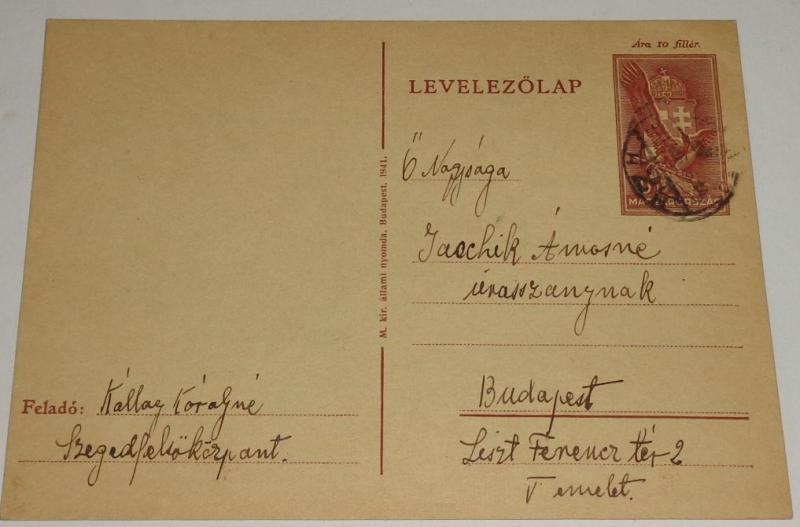 Ára 10 fillér.
LEVELEZŐLAP
MAGYARORSZÁG
Ő Nagysága
Jaschik Álmosné
úrasszonynak
Budapest
Liszt Ferencz tér 2
V emelet.
M. kir. állami nyomda. Budapest. 1941.
Feladó: Kállay
Szegedfelsőközpont.